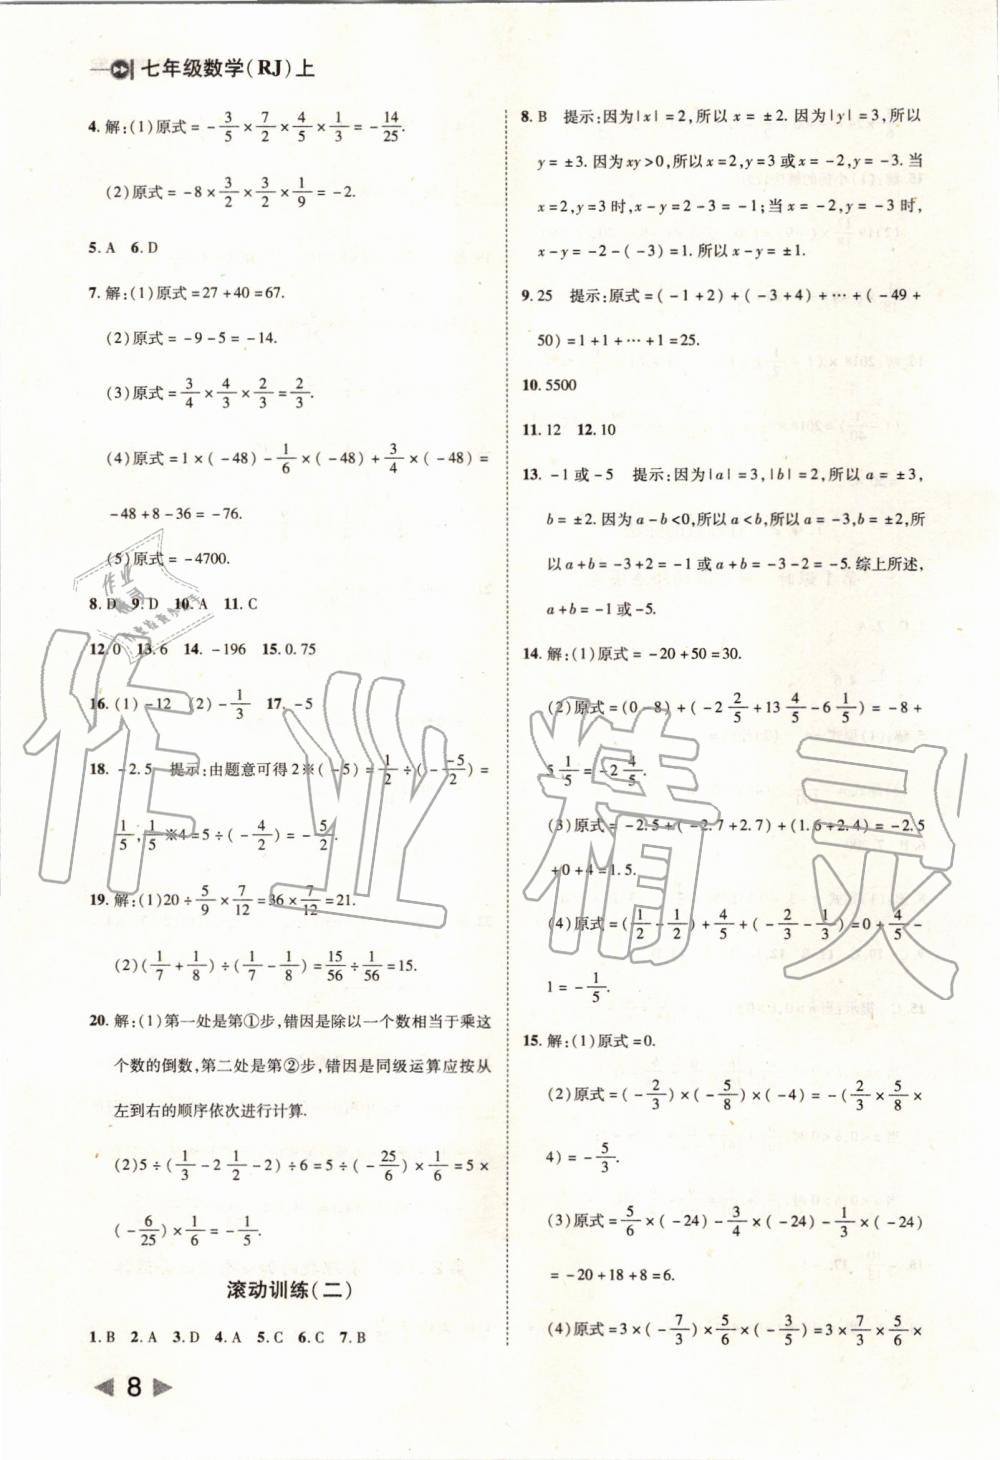 七年级数学(RJ)上
4.解:(1)原式=-3/5×7/2×4/5×1/3=-14/25.
(2)原式=-8×3/2×3/2×1/9=-2.
5.A 6.D
7.解:(1)原式=27+40=67.
(2)原式=-9-5=-14.
(3)原式=3/4×4/3×2/3=2/3.
(4)原式=1×(-48)-1/6×(-48)+3/4×(-48)=
-48+8-36=-76.
(5)原式=-4700.
8.D 9.D 10.A 11.C
12.0 13.6 14.-196 15.0.75
16.(1)-12 (2)-1/3 17.-5
18.-2.5 提示:由题意可得2※(-5)=1/2÷(--5/2)=
1/5,1/5※4=5÷(-4/2)=-5/2.
19.解:(1)20÷5/9×7/12=36×7/12=21.
(2)(1/7+1/8)÷(1/7-1/8)=15/56÷1/56=15.
20.解:(1)第一处是第①步,错因是除以一个数相当于乘这
个数的倒数,第二处是第②步,错因是同级运算应按从
左到右的顺序依次进行计算.
(2)5÷(1/3-2 1/2-2)÷6=5÷(-25/6)×1/6=5×
(-6/25)×1/6=-1/5.
滚动训练(二)
1.B 2.A 3.D 4.A 5.C 6.C 7.B
8
8.B 提示:因为|x|=2,所以x=±2.因为|y|=3,所以
y=±3.因为xy>0,所以x=2,y=3或x=-2,y=-3.当
x=2,y=3时,x-y=2-3=-1;当x=-2,y=-3时,
x-y=-2-(-3)=1.所以x-y=±1.
9.25 提示:原式=(-1+2)+(-3+4)+…+(-49+
50)=1+1+…+1=25.
10.5500
11.12 12.10
13.-1或-5 提示:因为|a|=3,|b|=2,所以a=±3,
b=±2.因为a-b<0,所以a<b,所以a=-3,b=±2,所
以a+b=-3+2=-1或a+b=-3-2=-5.综上所述,
a+b=-1或-5.
14.解:(1)原式=-20+50=30.
(2)原式=(0-8)+(-2 2/5+13 4/5-6 1/5)=-8+
5 1/5=-2 4/5.
(3)原式=-2.5+(-2.7+2.7)+(1.6+2.4)=-2.5
+0+4=1.5.
(4)原式=(1/2-1/2)+4/5+(-2/3-1/3)=0+4/5-
1=-1/5.
15.解:(1)原式=0.
(2)原式=(-2/3)×(-5/8)×(-4)=-(2/3×5/8×
4)=-5/3.
(3)原式=5/6×(-24)-3/4×(-24)-1/3×(-24)
=-20+18+8=6.
(4)原式=3×(-7/3)×5/6×(-3/5)=3×7/3×5/6×
作业精灵